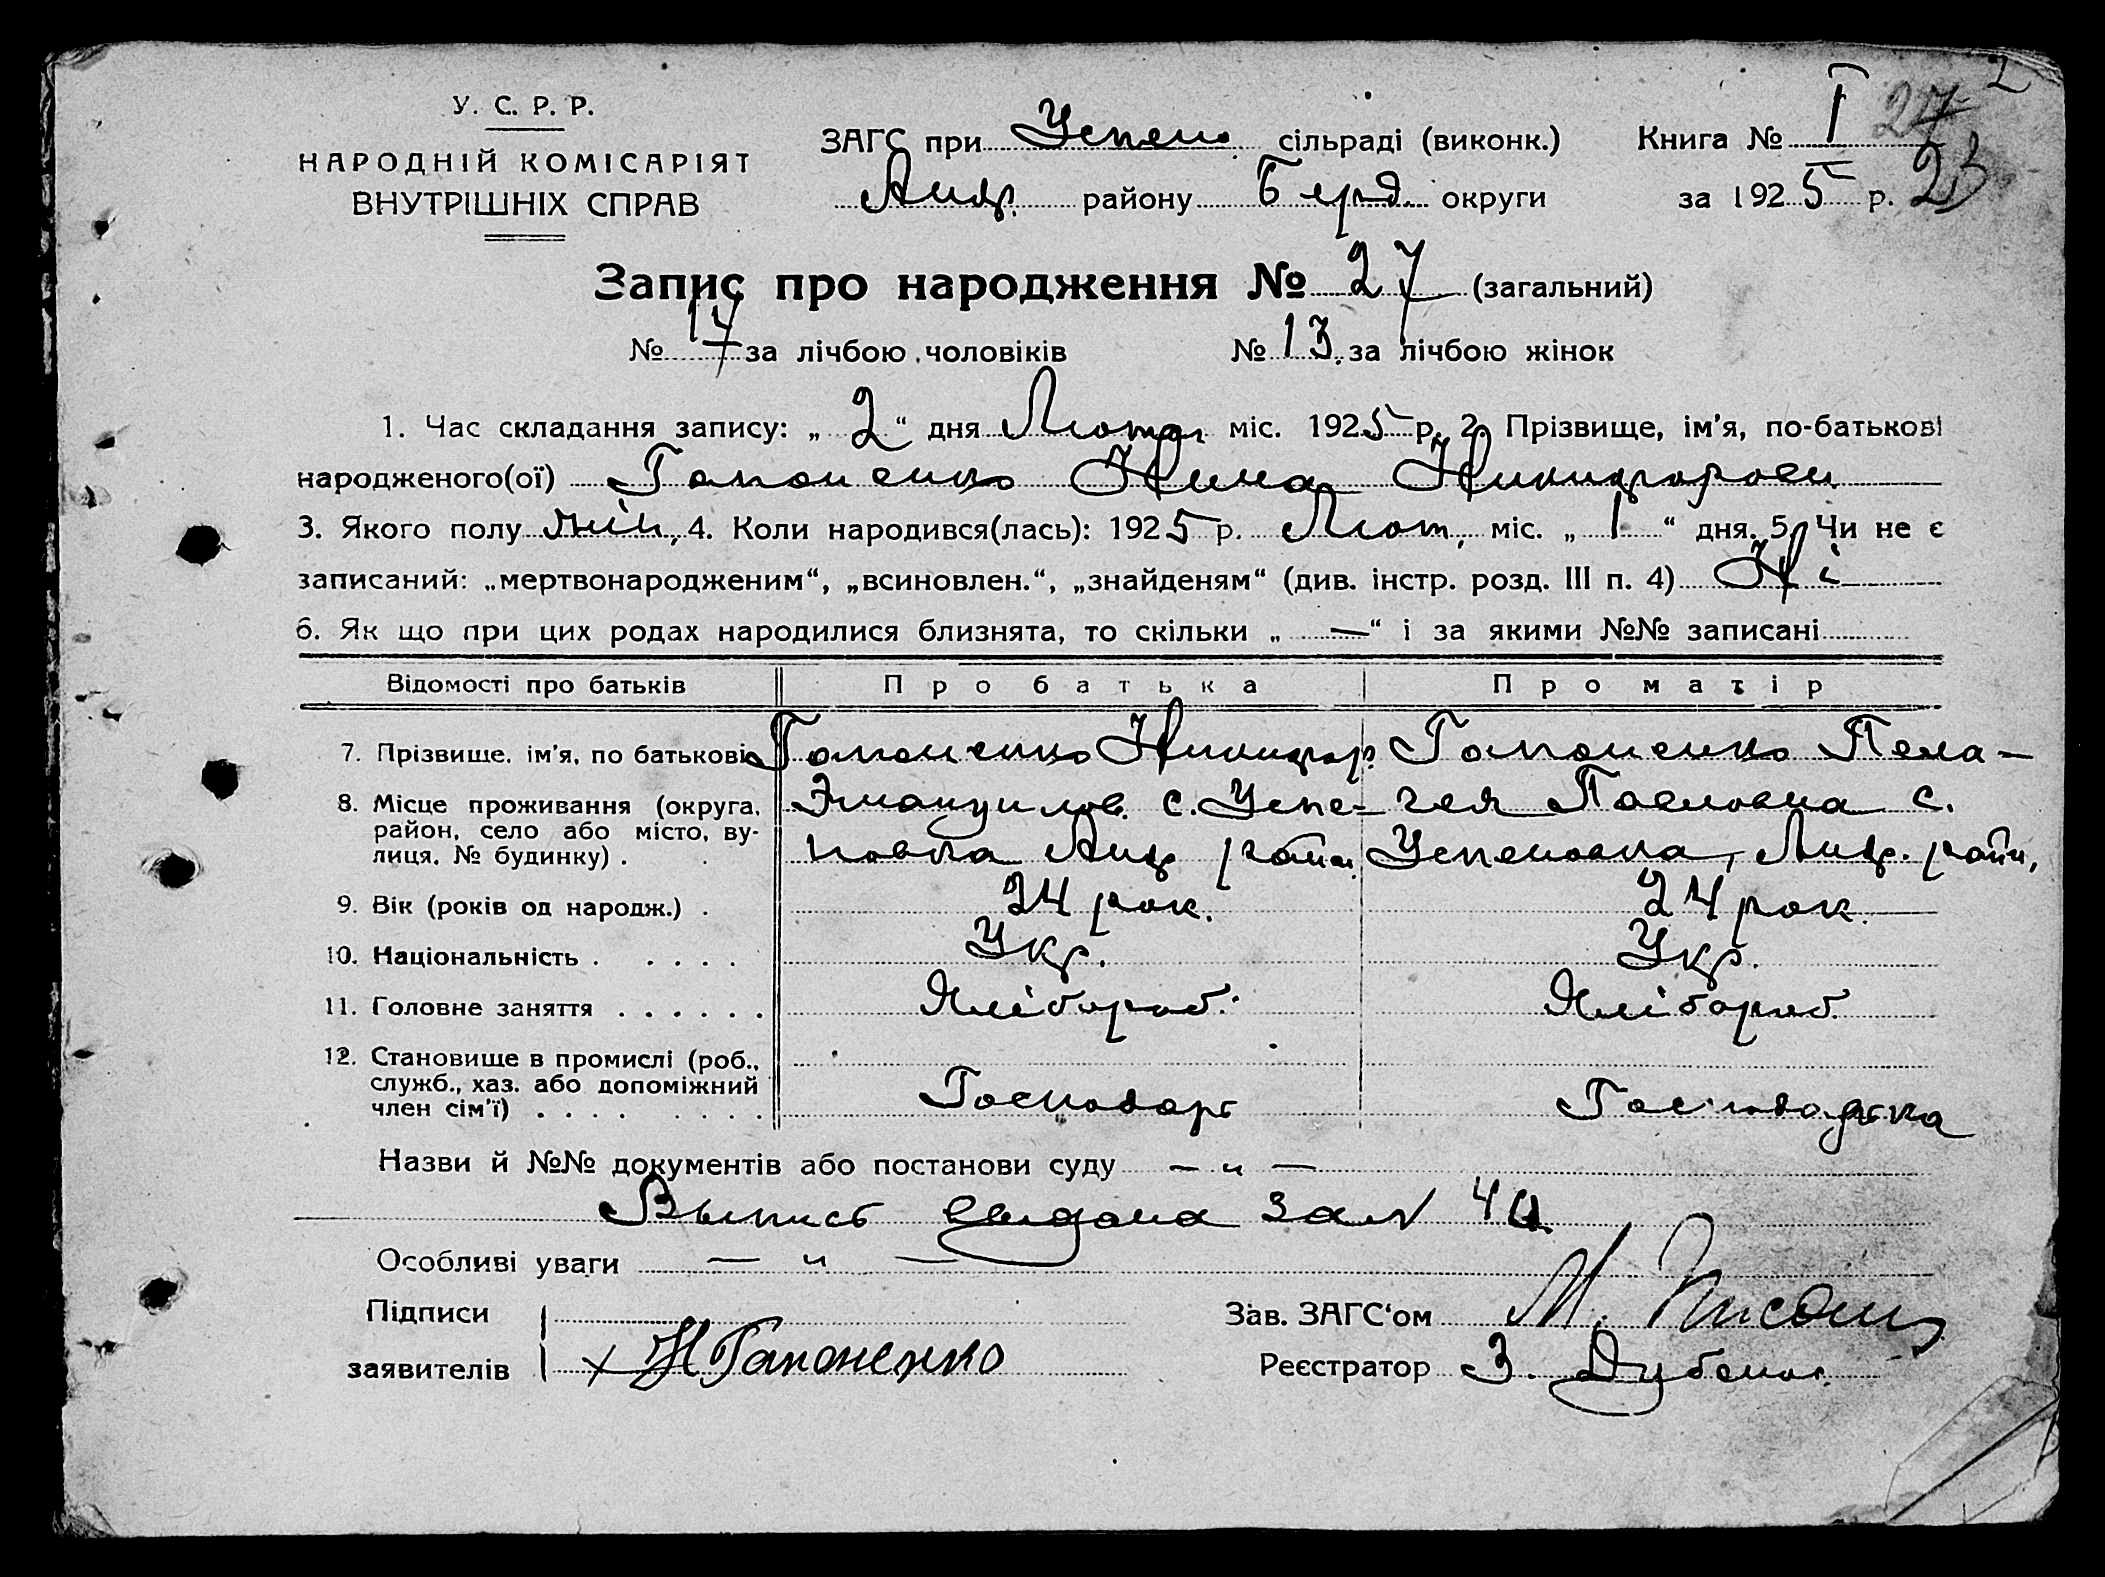 У. С. Р. Р.
НАРОДНІЙ КОМІСАРІЯТ
ВНУТРІШНІХ СПРАВ
ЗАГС при Успен. сільраді (виконк.)
Андр. району Берд. округи
Книга № I 27 2
за 1925 р. 23
Запис про народження № 27 (загальний)
№ 14 за лічбою чоловіків № 13 за лічбою жінок
1. Час складання запису: „2“ дня Лютого міс. 1925 р. 2. Прізвище, ім'я, по-батькові
народженого(ої) Гапоненко Нина Никифоровн
3. Якого полу жін, 4. Коли народився(лась): 1925 р. Лют, міс. „1“ дня. 5. Чи не є
записаний: „мертвонародженим“, „всиновлен.“, „знайденям“ (див. інстр. розд. III п. 4) Ні
6. Як що при цих родах народилися близнята, то скільки „—“ і за якими №№ записані
Відомості про батьків Про батька Про матір
7. Прізвище, ім'я, по батькові Гапоненко Никифор Гапоненко Пела-
8. Місце проживання (округа, район, село або місто, вулиця, № будинку) . Эмануилов. с. Успе- гея Павловна с.
новка Андр район Успеновка, Андр. район,
9. Вік (років од народж.) . 24 рок. 24 рок.
10. Національність . . . . . Укр. Укр.
11. Головне заняття . . . . . . Хлібороб. Хлібороб.
12. Становище в промислі (роб., служб., хаз. або допоміжний член сім'ї) . . . . . . . . Господарь Господарка
Назви й №№ документів або постанови суду — „ —
Выпись выдана за №
Особливі уваги — „ —
Підписи
заявителів
Н Гапоненко
Зав. ЗАГС'ом М.
Реєстратор З.